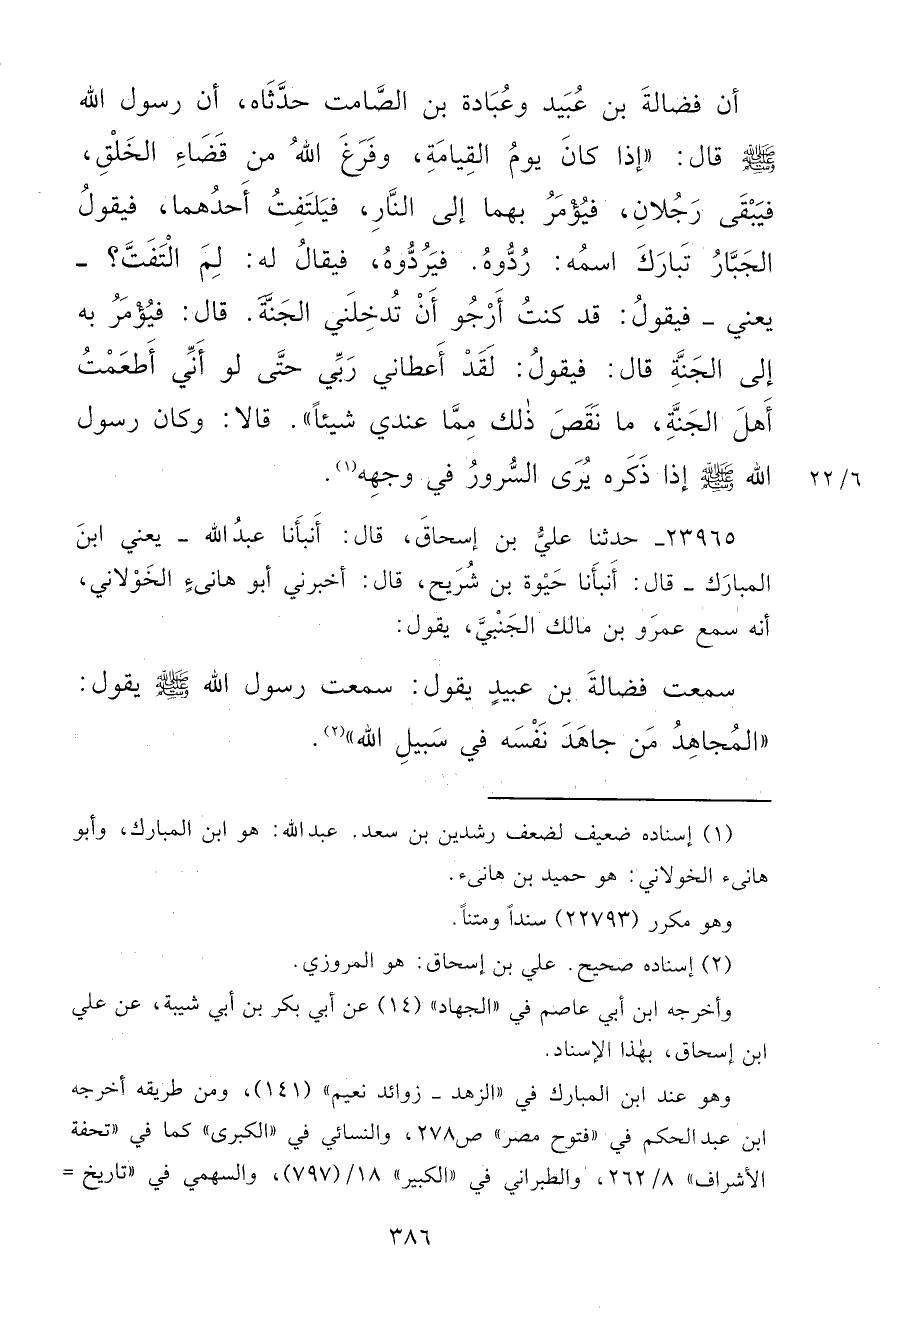 أن فضالةَ بن عُبَيد وعُبَادة بن الصَّامت حدَّثَاه، أن رسول الله
ﷺ قال: «إذا كانَ يومُ القِيامَةِ، وفَرَغَ اللهُ من قَضَاءِ الخَلْقِ،
فيَبْقَى رَجُلانِ، فيُؤْمَرُ بهما إلى النَّارِ، فيَلتَفِتُ أَحدُهما، فيقولُ
الجَبَّارُ تَبارَكَ اسمُه: رُدُّوهُ. فيَرُدُّوهُ، فيقالُ له: لِمَ الْتَفَتَّ؟ ـ
يعني ـ فيقولُ: قد كنتُ أَرْجُو أَنْ تُدخِلَني الجَنَّةَ. قال: فيُؤْمَرُ به
إلى الجَنَّةِ قال: فيقولُ: لَقَدْ أَعطاني رَبِّي حتَّى لو أَنِّي أَطعَمْتُ
أَهلَ الجَنَّةِ، ما نَقَصَ ذٰلك مِمَّا عندي شيئاً». قالا: وكان رسول
الله ﷺ إذا ذَكَره يُرَى السُّرورُ في وجهِه(١).
٢٢/٦
٢٣٩٦٥ـ حدثنا عليُّ بن إسحاقَ، قال: أَنبأَنا عبدُ الله ـ يعني ابنَ
المبارَك ـ قال: أَنبأَنا حَيْوة بن شُرَيح، قال: أخبرني أبو هانىءٍ الخَوْلاني،
أنه سمع عمرَو بن مالك الجَنْبيَّ، يقول:
سمعت فضالةَ بن عبيدٍ يقول: سمعت رسول الله ﷺ يقول:
«المُجاهِدُ مَن جاهَدَ نَفْسَه في سَبيلِ الله»(٢).
(١) إسناده ضعيف لضعف رشدين بن سعد. عبدالله: هو ابن المبارك، وأبو
هانىء الخولاني: هو حميد بن هانىء.
وهو مكرر (٢٢٧٩٣) سنداً ومتناً.
(٢) إسناده صحيح. علي بن إسحاق: هو المروزي.
وأخرجه ابن أبي عاصم في «الجهاد» (١٤) عن أبي بكر بن أبي شيبة، عن علي
ابن إسحاق، بهٰذا الإسناد.
وهو عند ابن المبارك في «الزهد ـ زوائد نعيم» (١٤١)، ومن طريقه أخرجه
ابن عبدالحكم في «فتوح مصر» ص٢٧٨، والنسائي في «الكبرى» كما في «تحفة
الأشراف» ٢٦٢/٨، والطبراني في «الكبير» ١٨/(٧٩٧)، والسهمي في «تاريخ =
٣٨٦